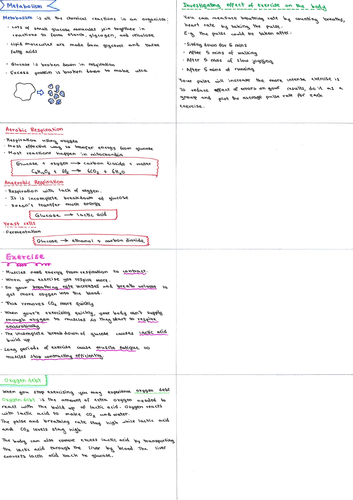 Metabolism
Metabolism is all the chemical reactions in an organism.
• Lots of small glucose molecules join together in
reactions to form starch, glycogen, and cellulose.
• Lipid molecules are made from glycerol and three
fatty acids
• Glucose is broken down in respiration
• Excess protein is broken down to make urea
Investigating effect of exercise on the body
You can measure breathing rate by counting breaths,
heart rate by taking the pulse.
E.g. The pulse could be taken after:
• Sitting down for 5 mins
• After 5 mins of walking
• After 5 mins of slow jogging
• After 5 mins of running
Your pulse will increase the more intense exercise is
To reduce effect of errors on your results, do it as a
group and plot the average pulse rate for each
exercise.
Aerobic Respiration
• Respiration using oxygen
• Most effective way to transfer energy from glucose
• Most reactions happen in mitochondria
Glucose + oxygen → carbon dioxide + water
C₆H₁₂O₆ + 6O₂ → 6CO₂ + 6H₂O
Anaerobic Respiration
• Respiration with lack of oxygen.
• It is incomplete breakdown of glucose
• Doesn't transfer much energy
Glucose → lactic acid
Yeast cells
• Fermentation
Glucose → ethanol + carbon dioxide
Exercise
• Muscles need energy from respiration to contract.
• When you exercise you respire more.
• So your breathing rate increases and breath volume to
get more oxygen into the blood.
• This removes CO₂ more quickly
• When you're exercising quickly, your body can't supply
enough oxygen to muscles so they start to respire
anaerobically
• The incomplete breakdown of glucose causes lactic acid
build up
• Long periods of exercise cause muscle fatigue so
muscles stop contracting efficiently.
Oxygen debt
When you stop exercising you may experience oxygen debt
Oxygen debt is the amount of extra oxygen needed to
react with the build up of lactic acid. Oxygen reacts
with lactic acid to make CO₂ and water.
The pulse and breathing rate stay high while lactic acid
and CO₂ levels stay high
The body can also remove excess lactic acid by transporting
the lactic acid through the liver by blood. The liver
converts lactic acid back to glucose.